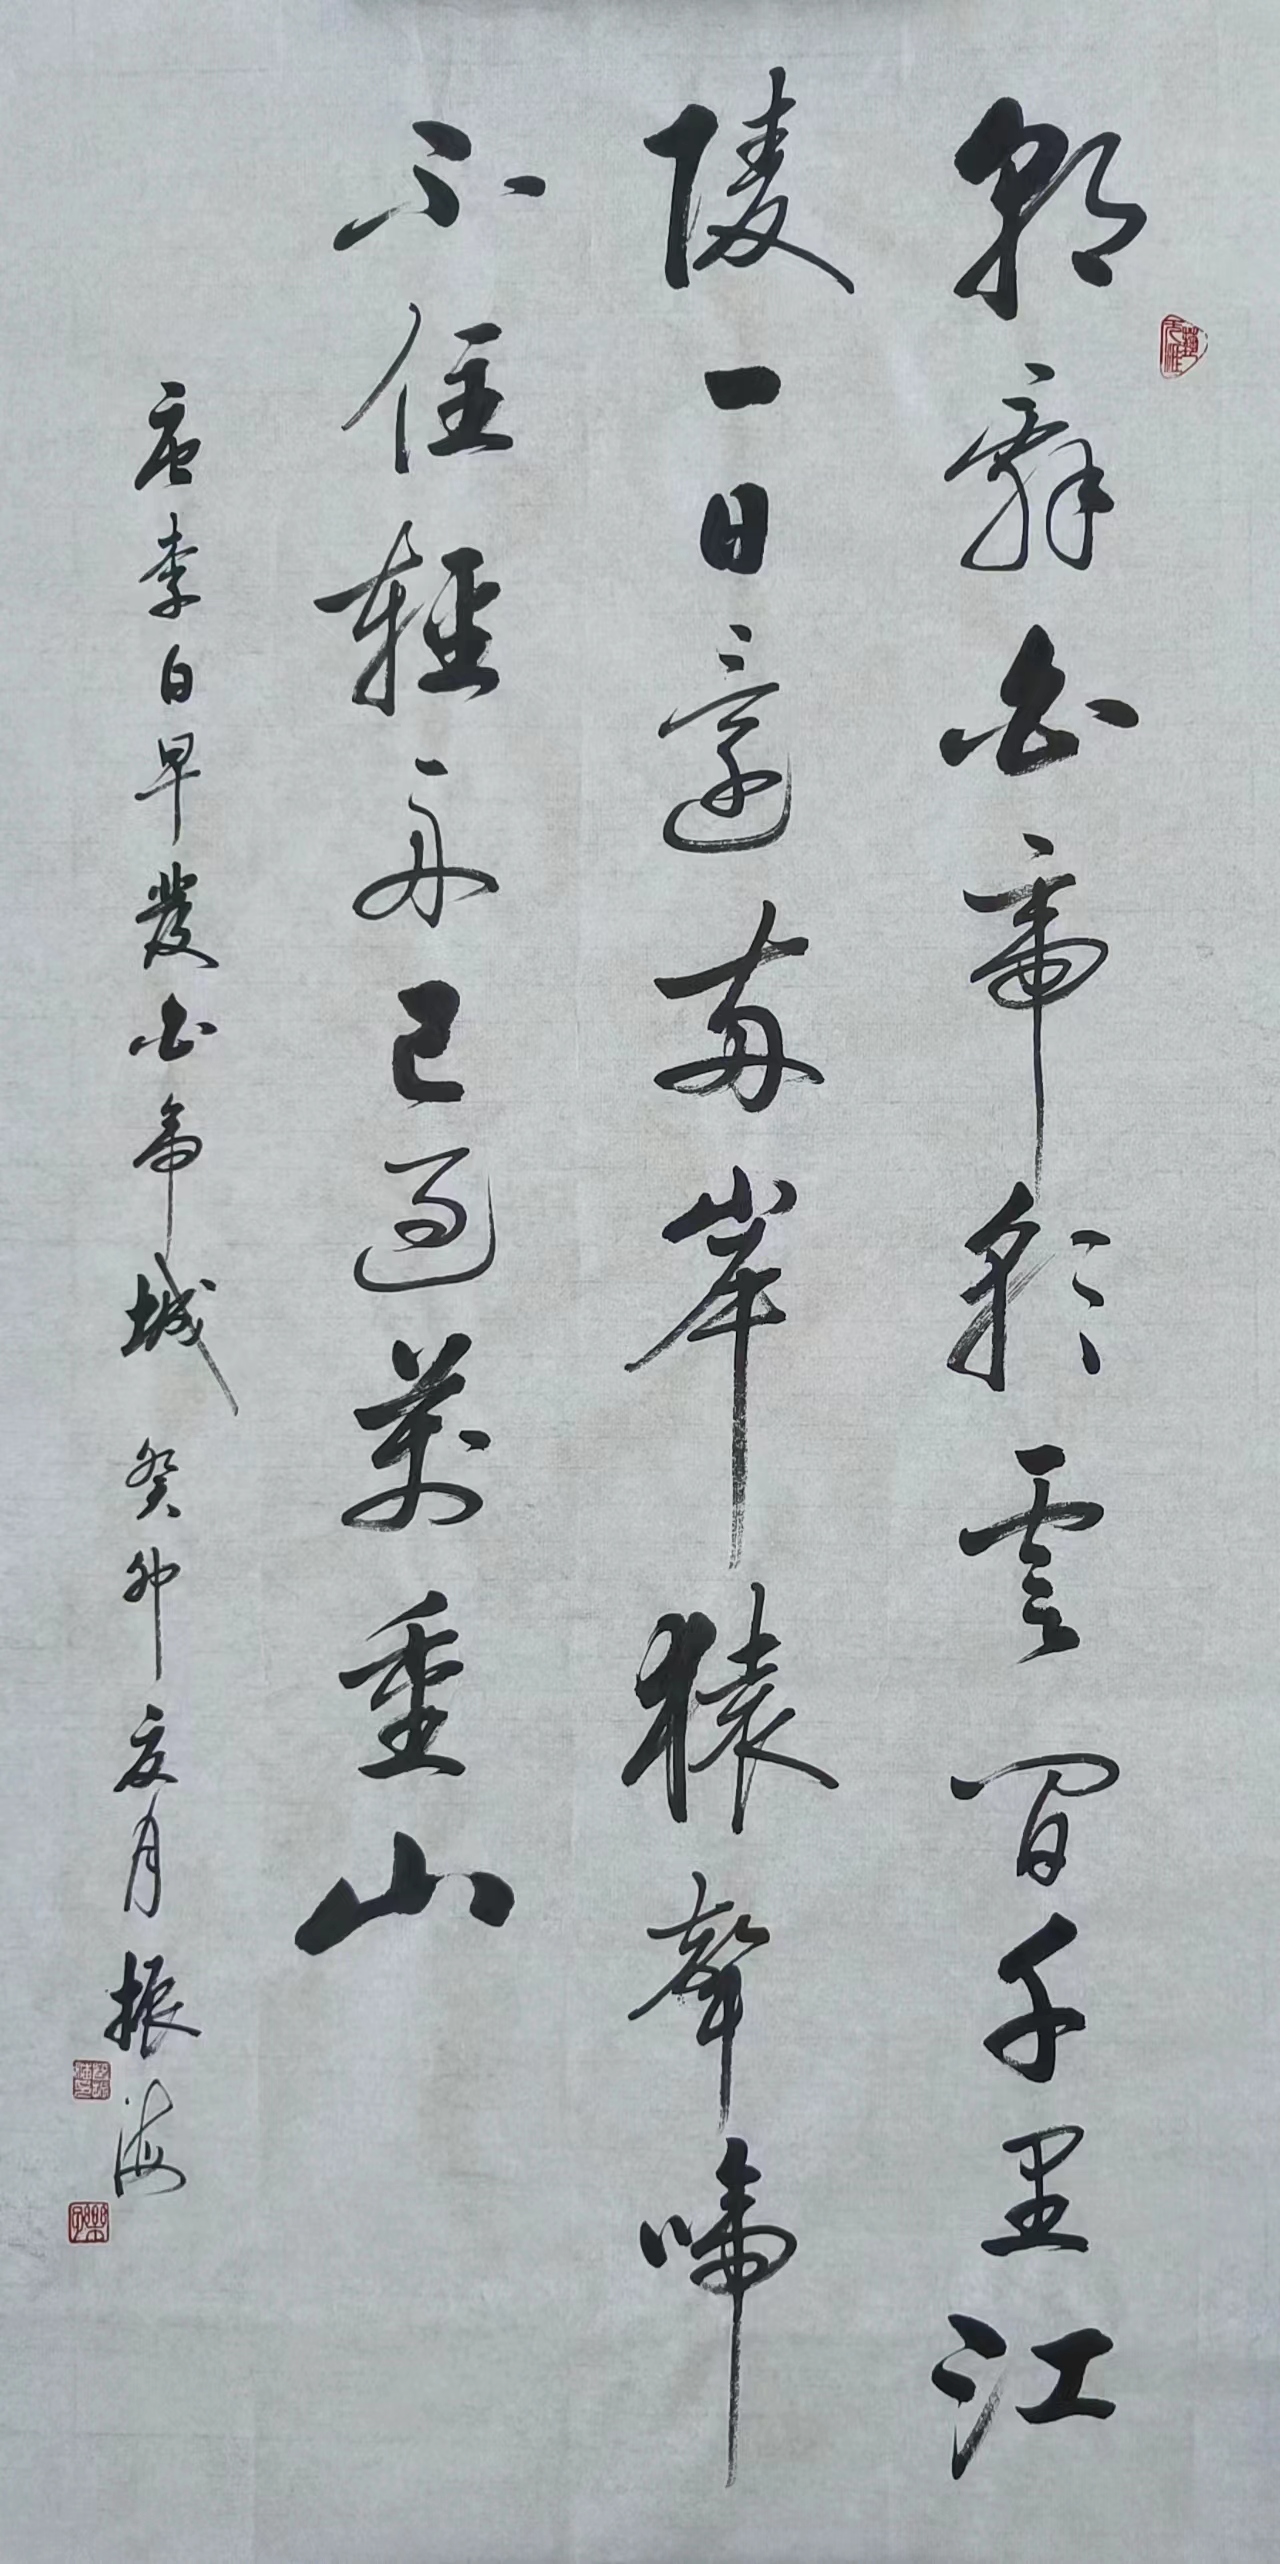 朝辭白帝彩雲間千里江
陵一日還兩岸猿聲啼
不住輕舟已過萬重山
唐李白早發白帝城 癸卯夏月振海